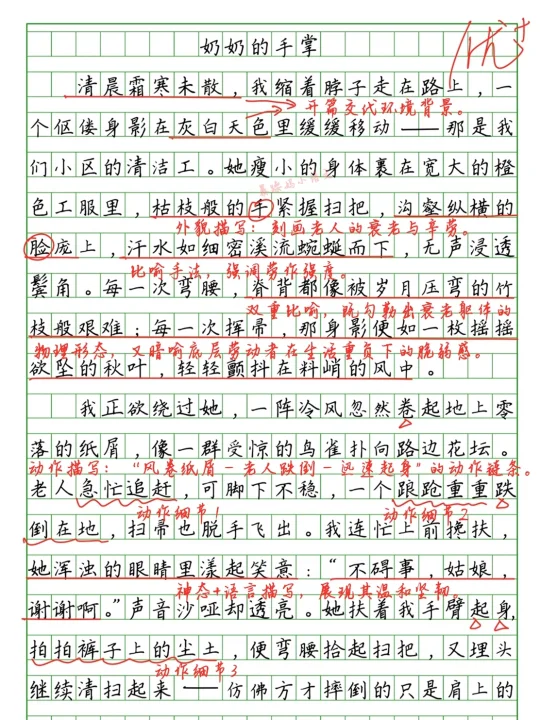 奶奶的手掌
优+
清晨霜寒未散，我缩着脖子走在路上，一
开篇交代环境背景。
个伛偻身影在灰白天色里缓缓移动——那是我
们小区的清洁工。她瘦小的身体裹在宽大的橙
色工服里，枯枝般的手紧握扫把，沟壑纵横的
外貌描写：刻画老人的衰老与辛劳。
脸庞上，汗水如细密溪流蜿蜒而下，无声浸透
比喻手法，强调劳作强度。
鬓角。每一次弯腰，脊背都像被岁月压弯的竹
双重比喻，既勾勒出衰老躯体的
枝般艰难；每一次挥帚，那身影便如一枚摇摇
物理形态，又暗喻底层劳动者在生活重负下的脆弱感。
欲坠的秋叶，轻轻颤抖在料峭的风中。
我正欲绕过她，一阵冷风忽然卷起地上零
落的纸屑，像一群受惊的鸟雀扑向路边花坛。
动作描写：“风卷纸屑－老人跌倒－迅速起身”的动作链条。
老人急忙追赶，可脚下不稳，一个踉跄重重跌
动作细节1
动作细节2
倒在地，扫帚也脱手飞出。我连忙上前搀扶，
她浑浊的眼睛里漾起笑意：“不碍事，姑娘，
神态+语言描写，展现其温和坚韧。
谢谢啊。”声音沙哑却透亮。她扶着我手臂起身，
拍拍裤子上的尘土，便弯腰拾起扫把，又埋头
动作细节3
继续清扫起来——仿佛方才摔倒的只是肩上的